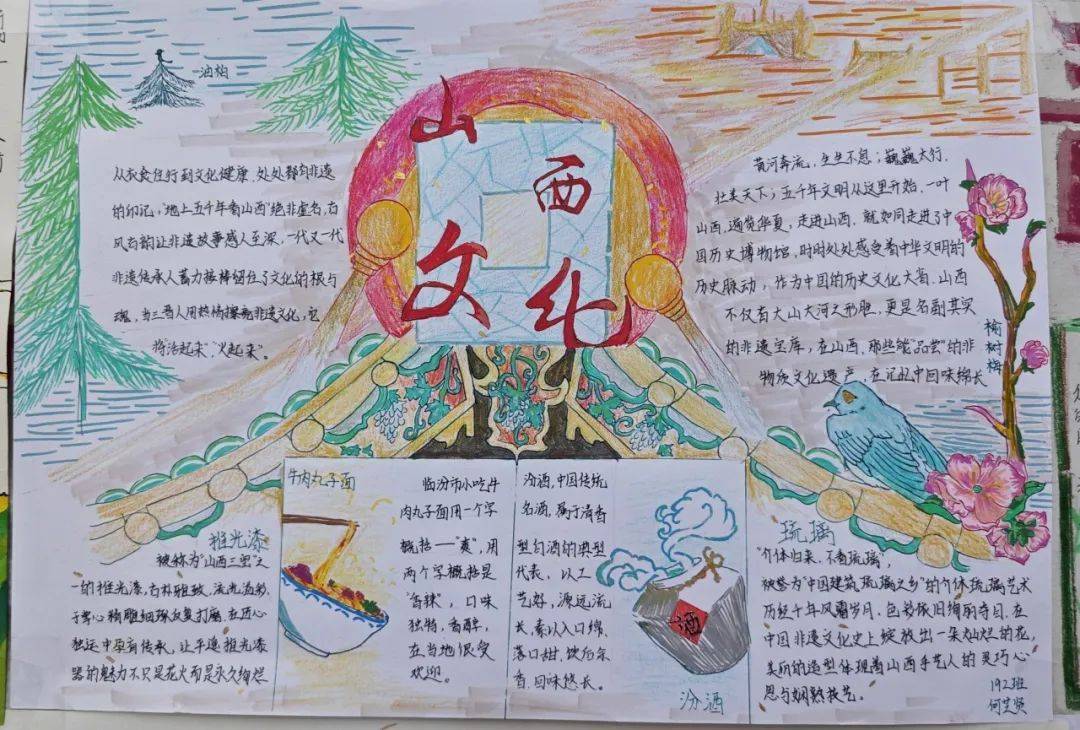 山西
文化
油柏
从衣食住行到文化健康,处处都有非遗
的印记,"地上五千年看山西"绝非虚名,古
风古韵让非遗故事感人至深,一代又一代
非遗传承人蓄力接棒留住了文化的根与
魂,当三晋人用热情擦亮非遗文化,它
将"活起来""火起来"。
黄河奔流,生生不息;巍巍太行,
壮美天下;五千年文明从这里开始,一叶
山西,遍览华夏,走进山西,就如同走进了中
国历史博物馆,时时处处感受着中华文明的
历史脉动,作为中国的历史文化大省,山西
不仅有大山大河之形胜,更是名副其实
的非遗宝库,在山西,那些能"品尝"的非
物质文化遗产,在记忆中回味绵长
榆树梅
推光漆
被称为"山西三宝"之
一的推光漆,古朴雅致、流光溢彩,
于掌心精雕细琢反复打磨,在匠心
独运中孕育传承,让平遥推光漆
器的魅力不只是花火而是永久绚烂
牛肉丸子面
临汾市小吃牛
肉丸子面用一个字
概括——"爽",用
两个字概括是
"香辣",口味
独特,香醇,
在当地很受
欢迎。
汾酒,中国传统
名酒,属于清香
型白酒的典型
代表,以工
艺好,源远流
长,素以入口绵、
落口甜、饮后余
香、回味悠长。
酒
汾酒
琉璃
"介休归来,不看琉璃",
被誉为"中国建筑琉璃之乡"的介休琉璃艺术
历经千年风霜岁月,色彩依旧绚丽夺目,在
中国非遗文化史上绽放出一朵灿烂的花,
美丽的造型体现着山西手艺人的灵巧心
思与娴熟技艺。
192班